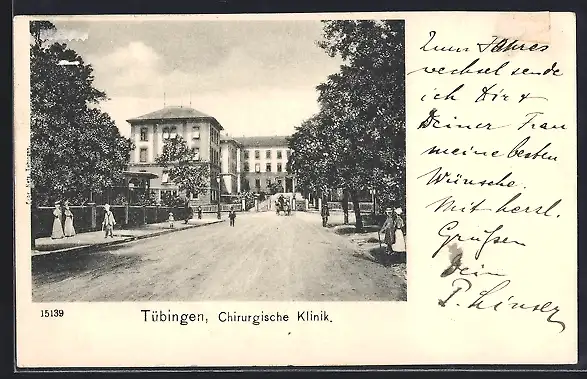 Zum Jahres
wechsel sende
ich Dir &
Deiner Frau
meine besten
Wünsche.
Mit herzl.
Grüßen
Dein
P. Linser
15139
Tübingen, Chirurgische Klinik.